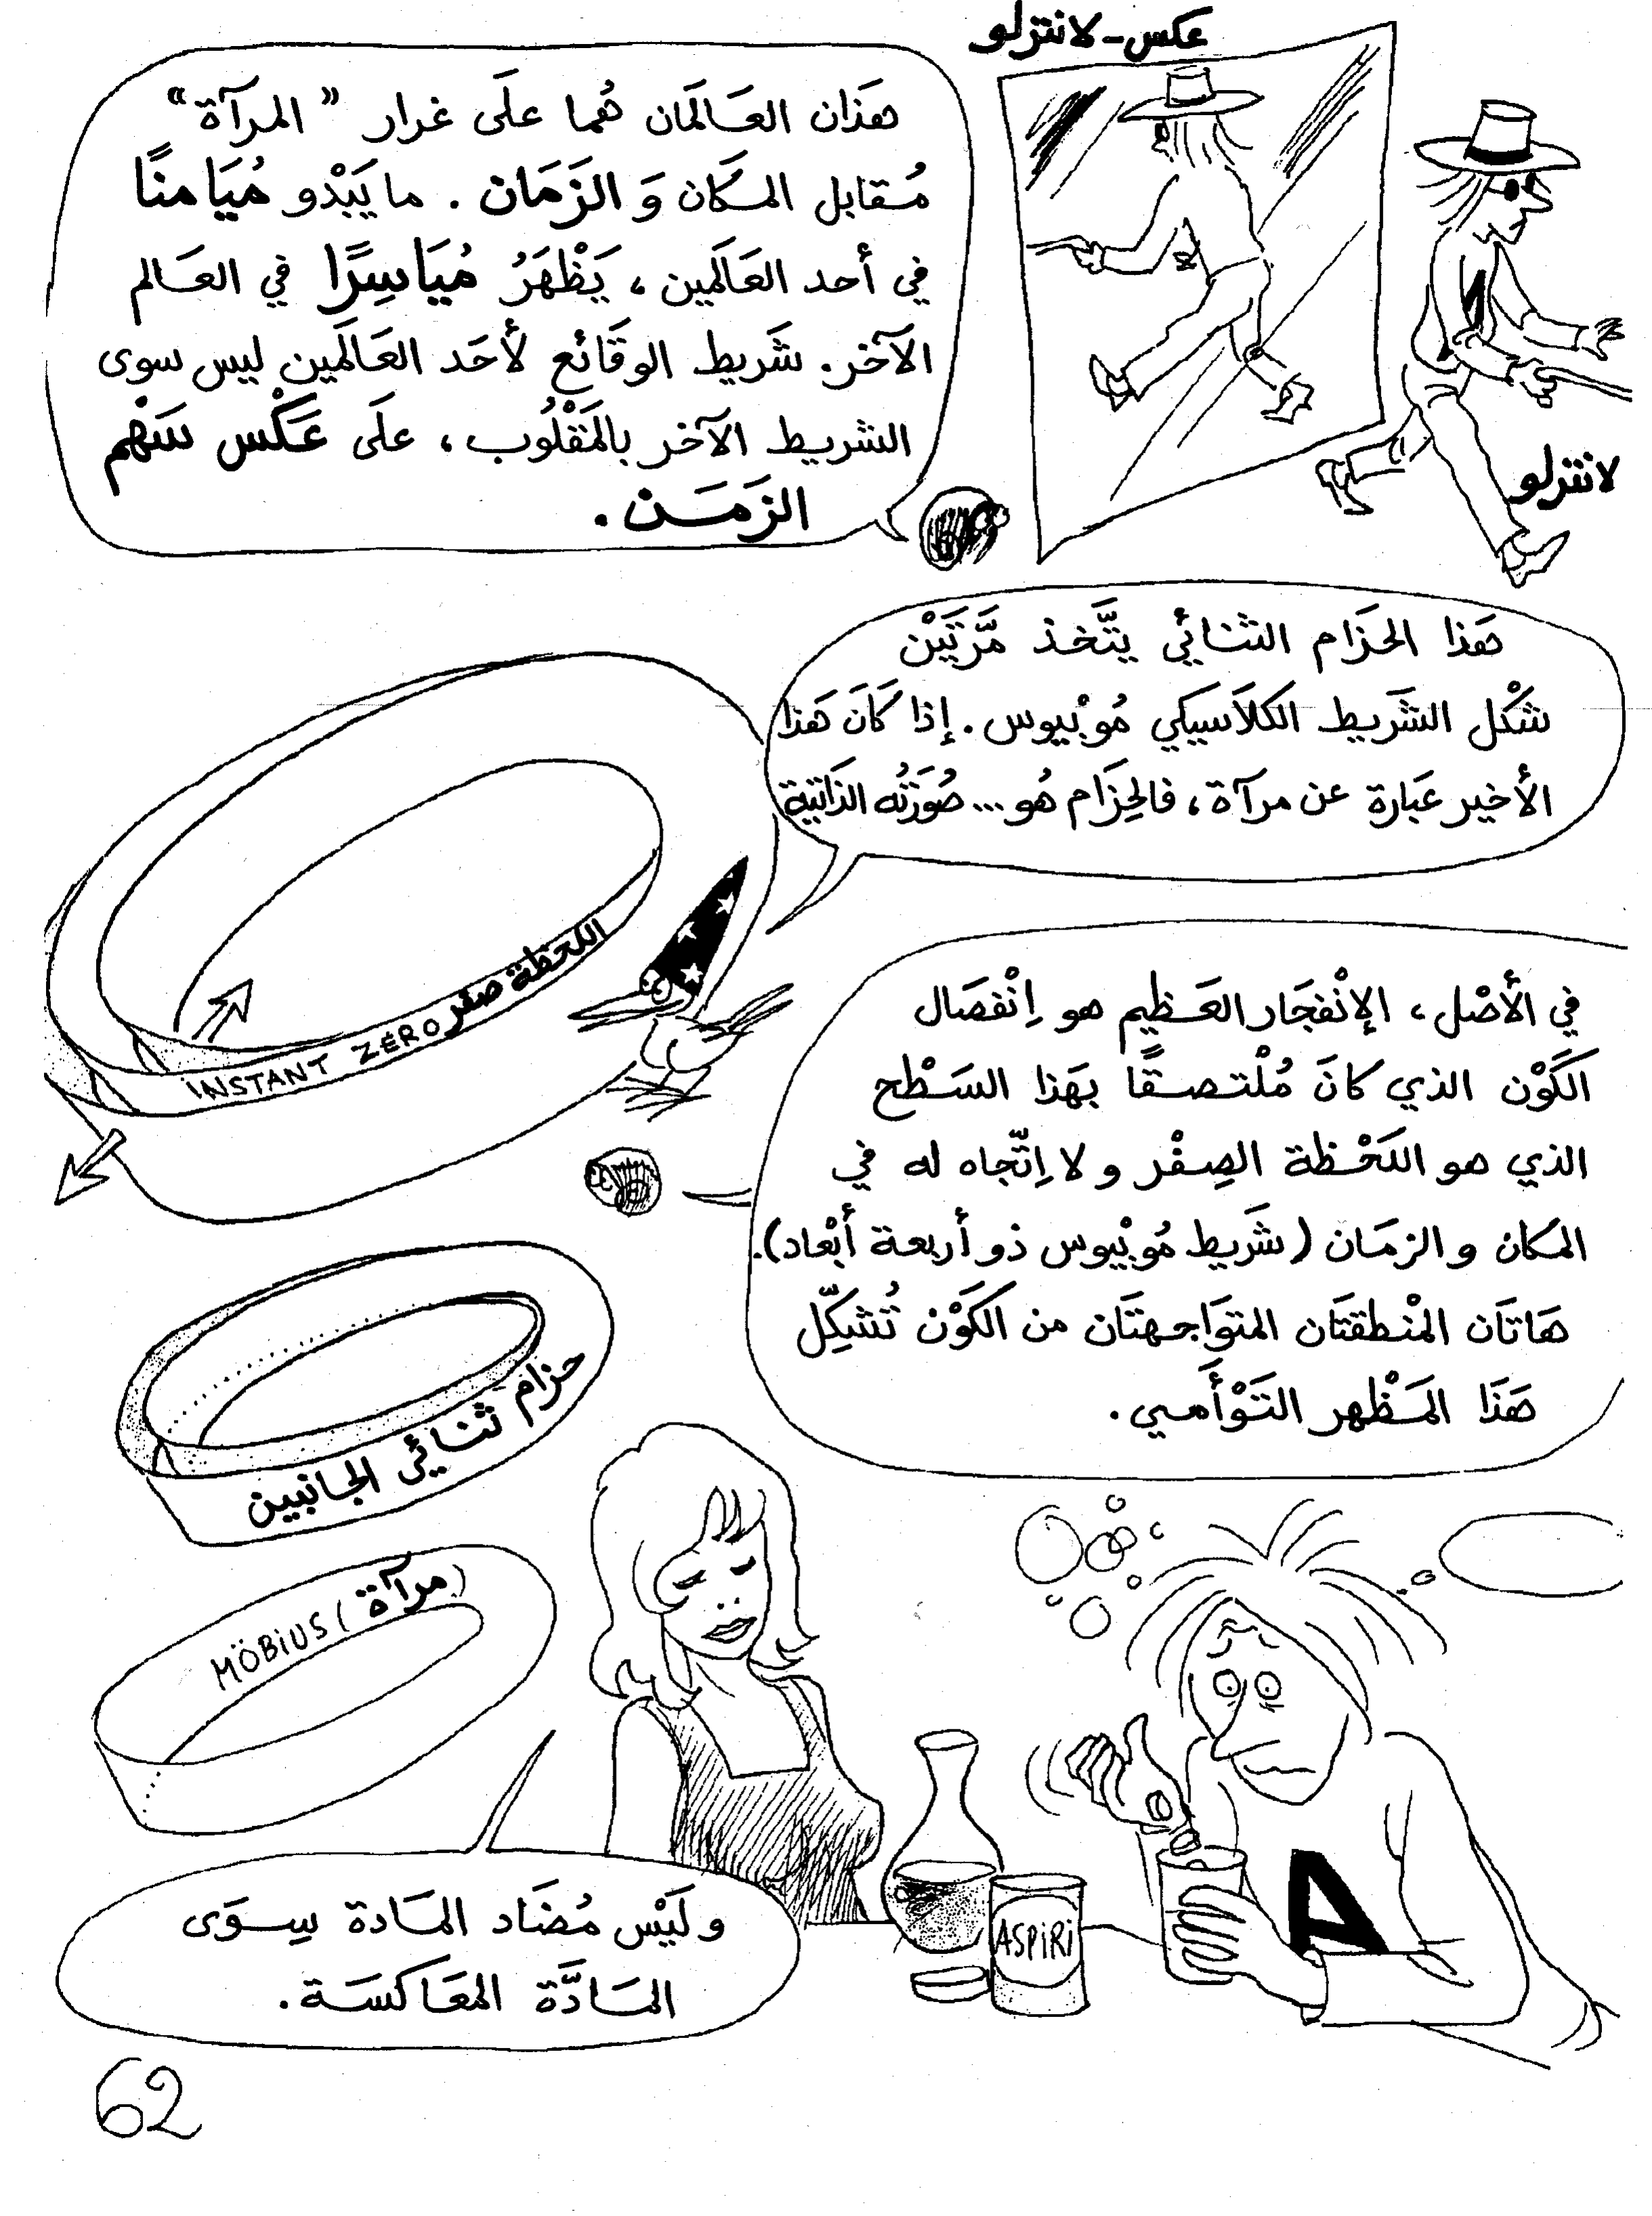 عكس-لانتزلو
هَذَان العَالَمَان هُمَا علَى غرار "المرآة"
مُقابل المكَان وَ الزَمَان. ما يَبْدُو مُيَامنًا
في أحد العَالَمين، يَظْهَرُ مُيَاسِرًا في العَالم
الآخر. شَريط الوقَائع لأَحَد العَالَمين ليس سوى
الشريط الآخر بالمَقْلُوب، علَى عَكْس سَهْم
الزَمَن.
لانتزلو
هَذا الحزَام الثنائي يتَّخذ مَّرتَيْن
شكْل الشَريط الكلاَسيكي مُوبْيوس. إذا كَانَ هَذا
الأخير عبَارة عن مرآة، فالحِزَام هُو... صُورَتُه الذاتية
اللحظة صفر
INSTANT ZÉRO
في الأصْل، الإنْفجَار العَظيم هو اِنْفصَال
الكَوْن الذي كانَ مُلْتصقًا بهَذا السَطْح
الذي هو اللَحْظة الصِفْر و لا اِتّجاه له في
المكان و الزمَان (شَريط مُوبْيوس ذو أربعة أبْعاد).
هَاتَان المْنطقتَان المتوَاجهتَان من الكَوْن تُشكِّل
هَذَا المَظْهر التَوْأَمي.
حزام ثنائي الجانبين
MÖBIUS (مرآة)
ASPIRI
A
و لَيْس مُضَاد المَادة سِوَى
المَادَّة المعَاكسَة.
62